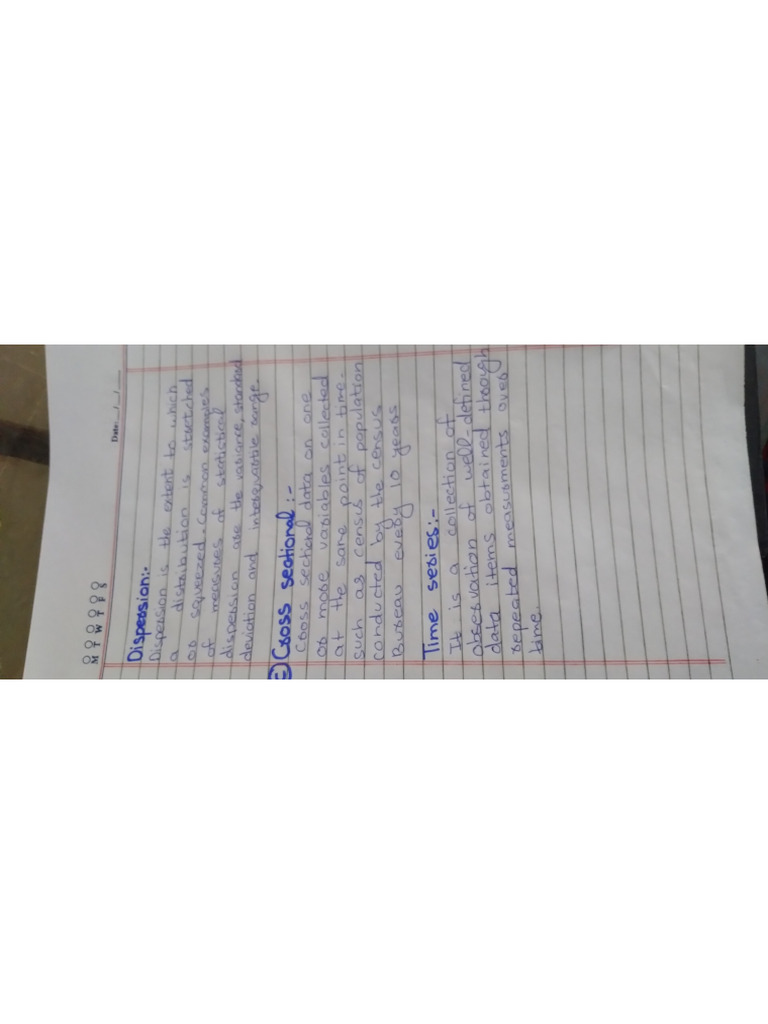 M T W T F S
Date: / /
Dispersion:-
Dispersion is the extent to which
a distribution is stretched
or squeezed. Common examples
of measures of statistical
dispersion are the variance, standard
deviation and interquartile range.
E) Cross sectional :-
Cross sectional data on one
or more variables collected
at the same point in time.
such as census of population
conducted by the census
Bureau every 10 years
Time series:-
It is a collection of
observation of well-defined
data items obtained through
repeated measurments over
time.